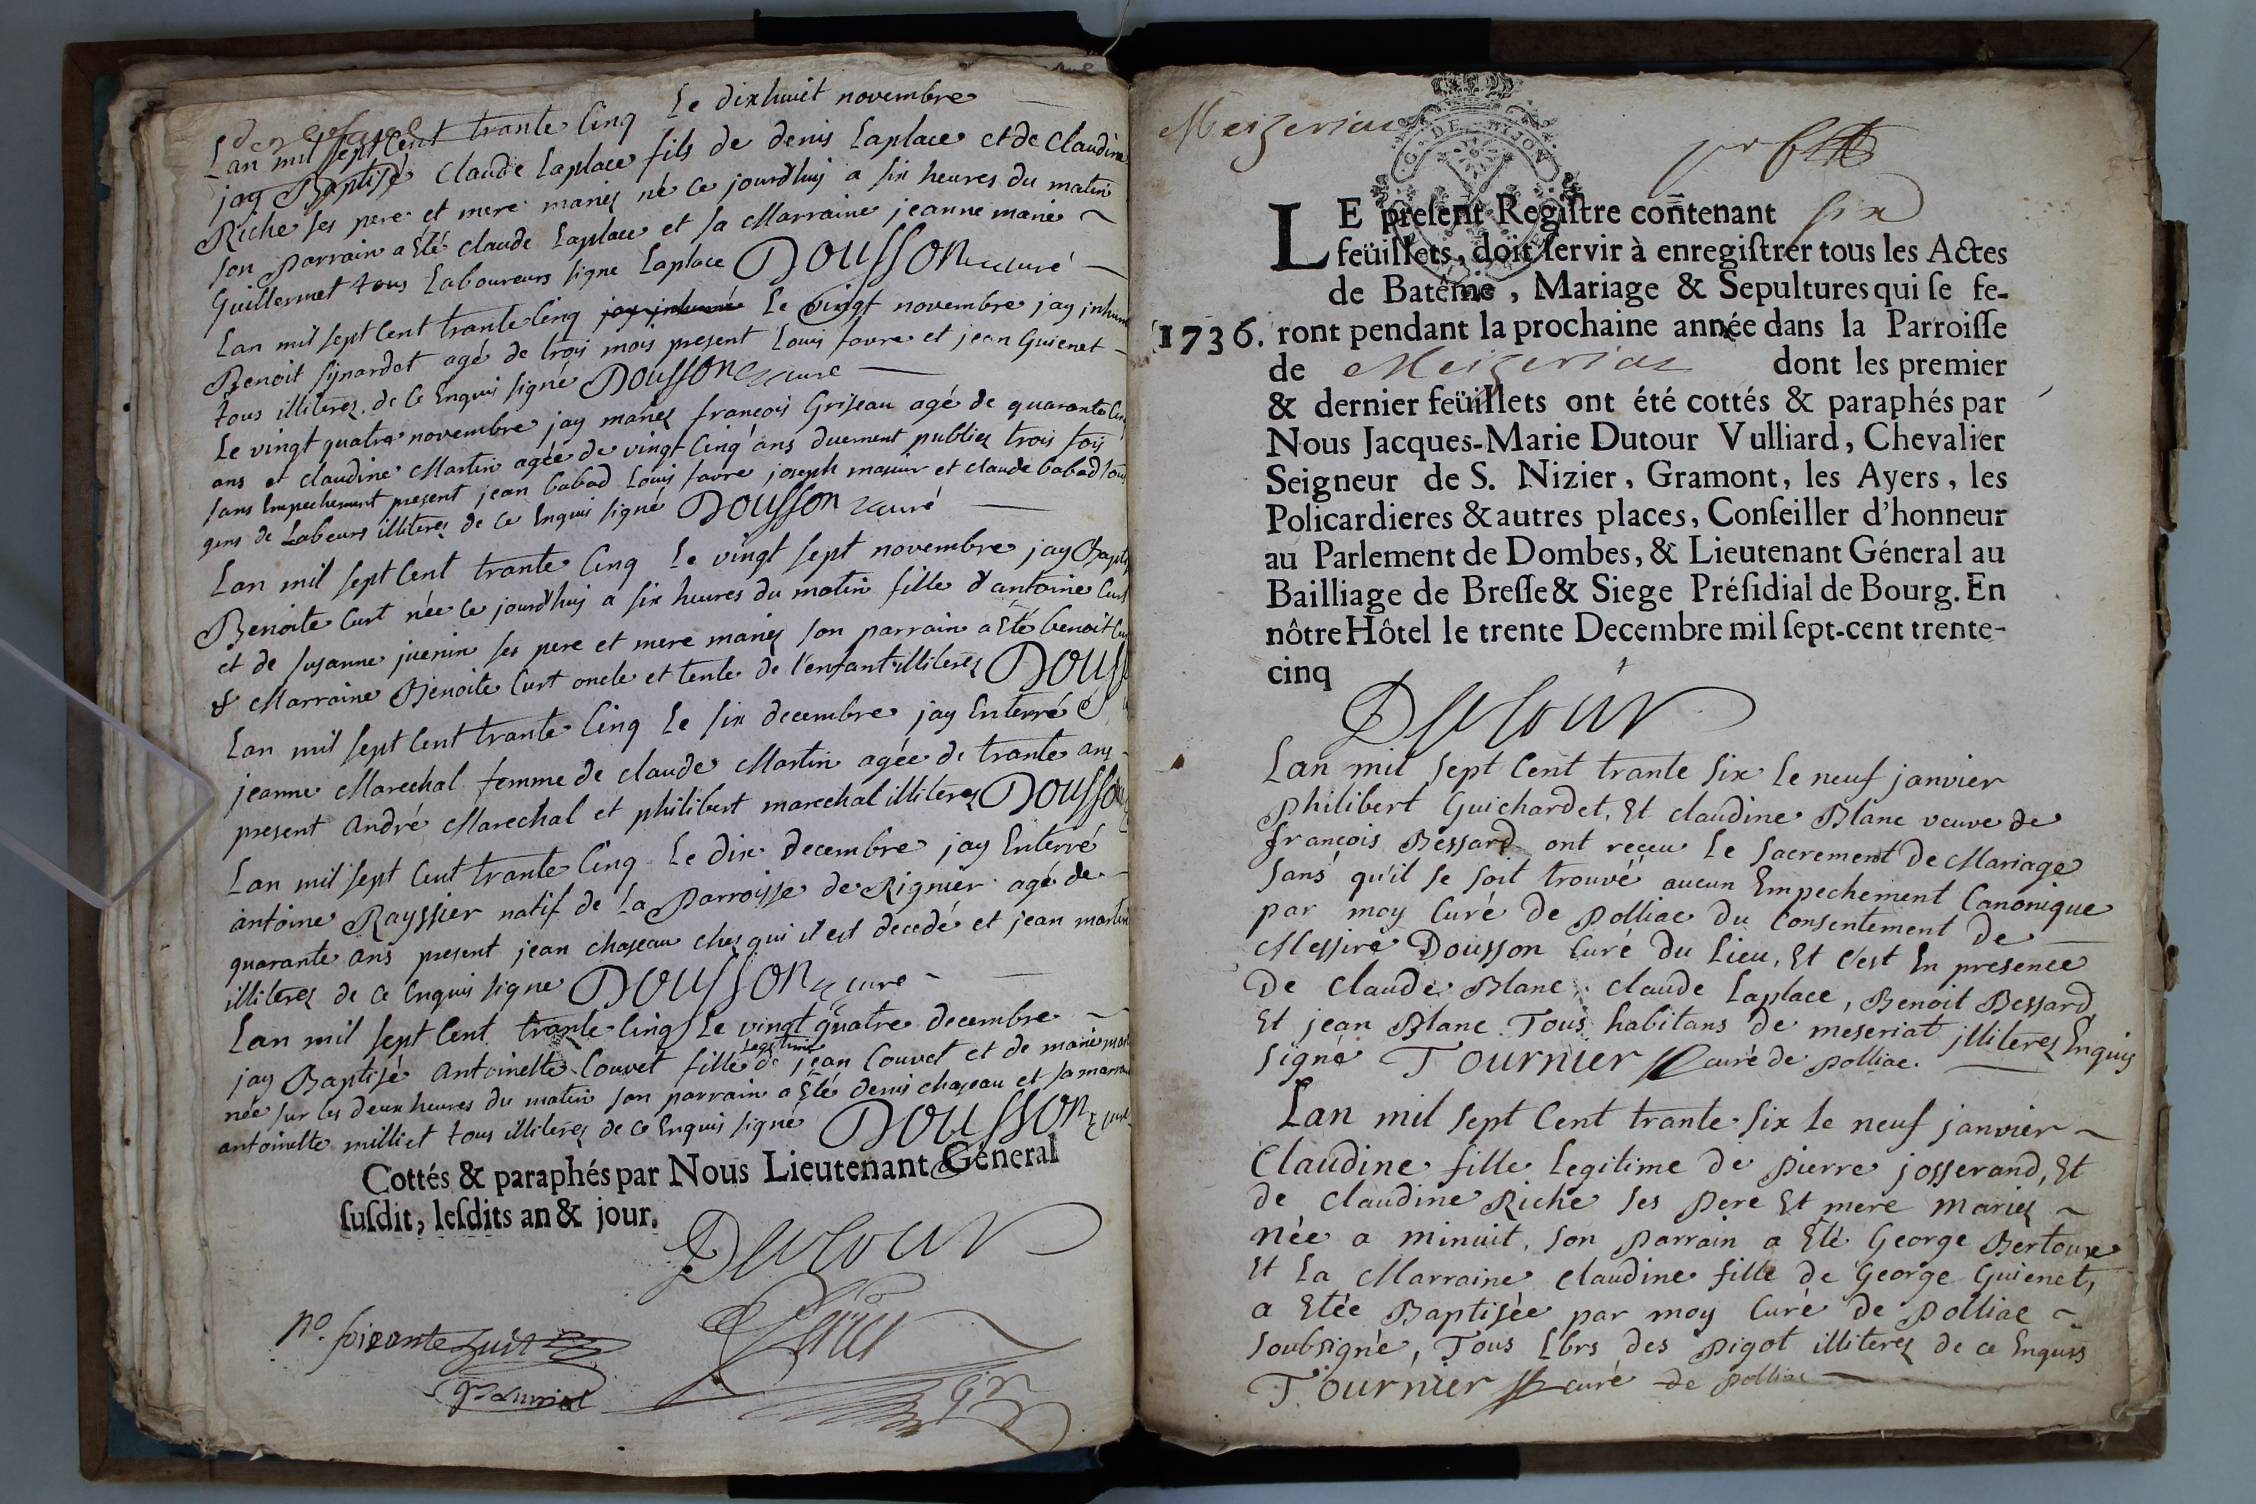 Lan mil sept Cent trante Cinq Le dixhuit novembre
jay Baptisé Claude Laplace fils de denis Laplace et de Claudine
Riche ses pere et mere mariez né ce jourdhuy a six heures du matin
son parrain a Eté claude Laplace et sa Marraine jeanne marie
Guillermet tous Laboureurs signe Laplace Dousson curé
Lan mil sept Cent trante Cinq jay inhumé Le vingt novembre jay inhum
Benoit synardet agé de trois mois present Louis favre et jean Guienet
tous illiterez de Ce Enquis signé Dousson curé
Le vingt quatre novembre jay mariez francois Griseau agé de quarante Cinq
ans et claudine Martin agée de vingt Cinq ans duement publiez trois fois
sans Empechement present jean babad Louis favre joseph masuir et claude babad tous
gens de Labeurs illiterez de Ce Enquis signé Dousson curé
Lan mil sept Cent trante Cinq Le vingt sept novembre jay Bapt
Benoite Curt née Ce jourdhuy a six heures du matin fille d'antoine Curt
et de susanne juenin ses pere et mere mariez son parrain a Eté benoit Cu
& Marraine Benoite Curt oncle et tente de l'enfant illiterez Douss
Lan mil sept Cent trante Cinq Le six decembre jay Enterré
jeanne Marechal femme de claude Martin agée de trante ans
present André Marechal et philibert marechal illiterez Dousson
Lan mil sept Cent trante Cinq Le dix decembre jay Enterré
antoine Rayssier natif de La Parroisse de Rignier agé de
quarante ans present jean chaseau ches qui il est decedé et jean martin
illiterez de Ce Enquis signe Dousson curé
Lan mil sept Cent trante Cinq Le vingt quatre decembre
Legitime
jay Baptisé Antoinette Couvet fille de jean Couvet et de marie mar
née sur les deux heures du matin son parrain a Eté denis chaseau et sa marra
antoinette milliet tous illiterez de Ce Enquis signé Dousson curé
Cottés & paraphés par Nous Lieutenant Géneral
susdit, lesdits an & jour.
Dutour
no. soixante huit
Meizeriat
LE present Registre contenant six
feüillets, doit servir à enregistrer tous les Actes
de Batême, Mariage & Sepultures qui se fe-
1736. ront pendant la prochaine année dans la Parroisse
de Meizeriat dont les premier
& dernier feüillets ont été cottés & paraphés par
Nous Jacques-Marie Dutour Vulliard, Chevalier
Seigneur de S. Nizier, Gramont, les Ayers, les
Policardieres & autres places, Conseiller d'honneur
au Parlement de Dombes, & Lieutenant Géneral au
Bailliage de Bresse & Siege Présidial de Bourg. En
nôtre Hôtel le trente Decembre mil sept-cent trente-
cinq
Dutour
Lan mil sept Cent trante six Le neuf janvier
Philibert Guichardet, Et claudine Blanc veuve de
françois Bessard ont receu Le Sacrement De Mariage
Sans qu'il se soit trouvé aucun Empechement Canonique
par moy Curé De Polliac Du Consentement De
Messire Dousson Curé Du Lieu, Et C'est En presence
De Claude Blanc, claude Laplace, Benoit Bessard,
Et jean Blanc Tous habitans de meseriat illiterez Enquis
signé Tournier curé de Polliac.
Lan mil sept Cent trante six le neuf janvier
Claudine fille Legitime de Pierre josserand, Et
de Claudine Riche ses Pere Et mere Mariez
Née a minuit, son Parrain a Eté George Bertoux
Et La Marraine Claudine fille de George Guienet,
a Etée Baptisée par moy Curé de Polliac
soubsigné, Tous Lbrs des Pigot illiterez de ce Enquis
Tournier curé de Polliac